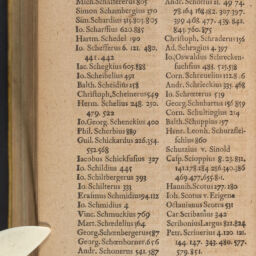 Mich. Schatterus 805
Simon Schambergius 370
Sim. Schardius 315.803.805
Io. Scharffius 620.885
Hartm. Schedel 190
Io. Schefferus 6. 121. 480,
441. 442
Iac. Schegkius 605.888
Io. Scheibelius 491
Balth. Scheidius 258
Christoph. Scheinerus 549
Herm. Schelius 248. 250.
479. 522
Io. Georg. Schenckius 400
Phil. Scherbius 889
Guil. Schickardus 226.354.
552.568
Iacobus Schickfusius 327
Io. Schildius 445
Io. Schiltbergerus 393
Io. Schilterus 331
Erasmus Schmidius 194.112
Io. Schmidius 4
Vinc. Schmuckius 769
Mart. Schneidelius 764
Georg. Schœnbergerus 587
Georg. Schœnborner. 656
Andr. Schonerus 541. 587
Andr. Schottus 21. 49 74.
78.164 184. 192. 397.397.
399 468 477. 439. 842.
845. 760. 875
Christoph. Schraderus 156
Ad. Schragius 4. 397
Io. Oswaldus Schrecken-
fuchsius 488. 525. 518
Corn. Schrevelius 112.8.6
Andr. Schrieckius 335. 468
Io. Schroderus 511
Georg Schubartus 156 859
Corn. Schultingius 214
Balth. Schuppius 157
Henr. Leonh. Schurzfei-
schius 860
Schurzius v. Sinold
Casp. Scioppius 8. 23.811,
141. 178. 184. 256 340. 386
469. 477. 565. 8 1.
Hannib. Scotus 177. 180
Ioh. Scotus v. Erigena
Octavianus Scotus 531
Car Scribanius 342
Scribonius Largus 812.824
Petr. Scriverius 4. 120. 121.
144. 147. 343. 480. 577.
579. 851.